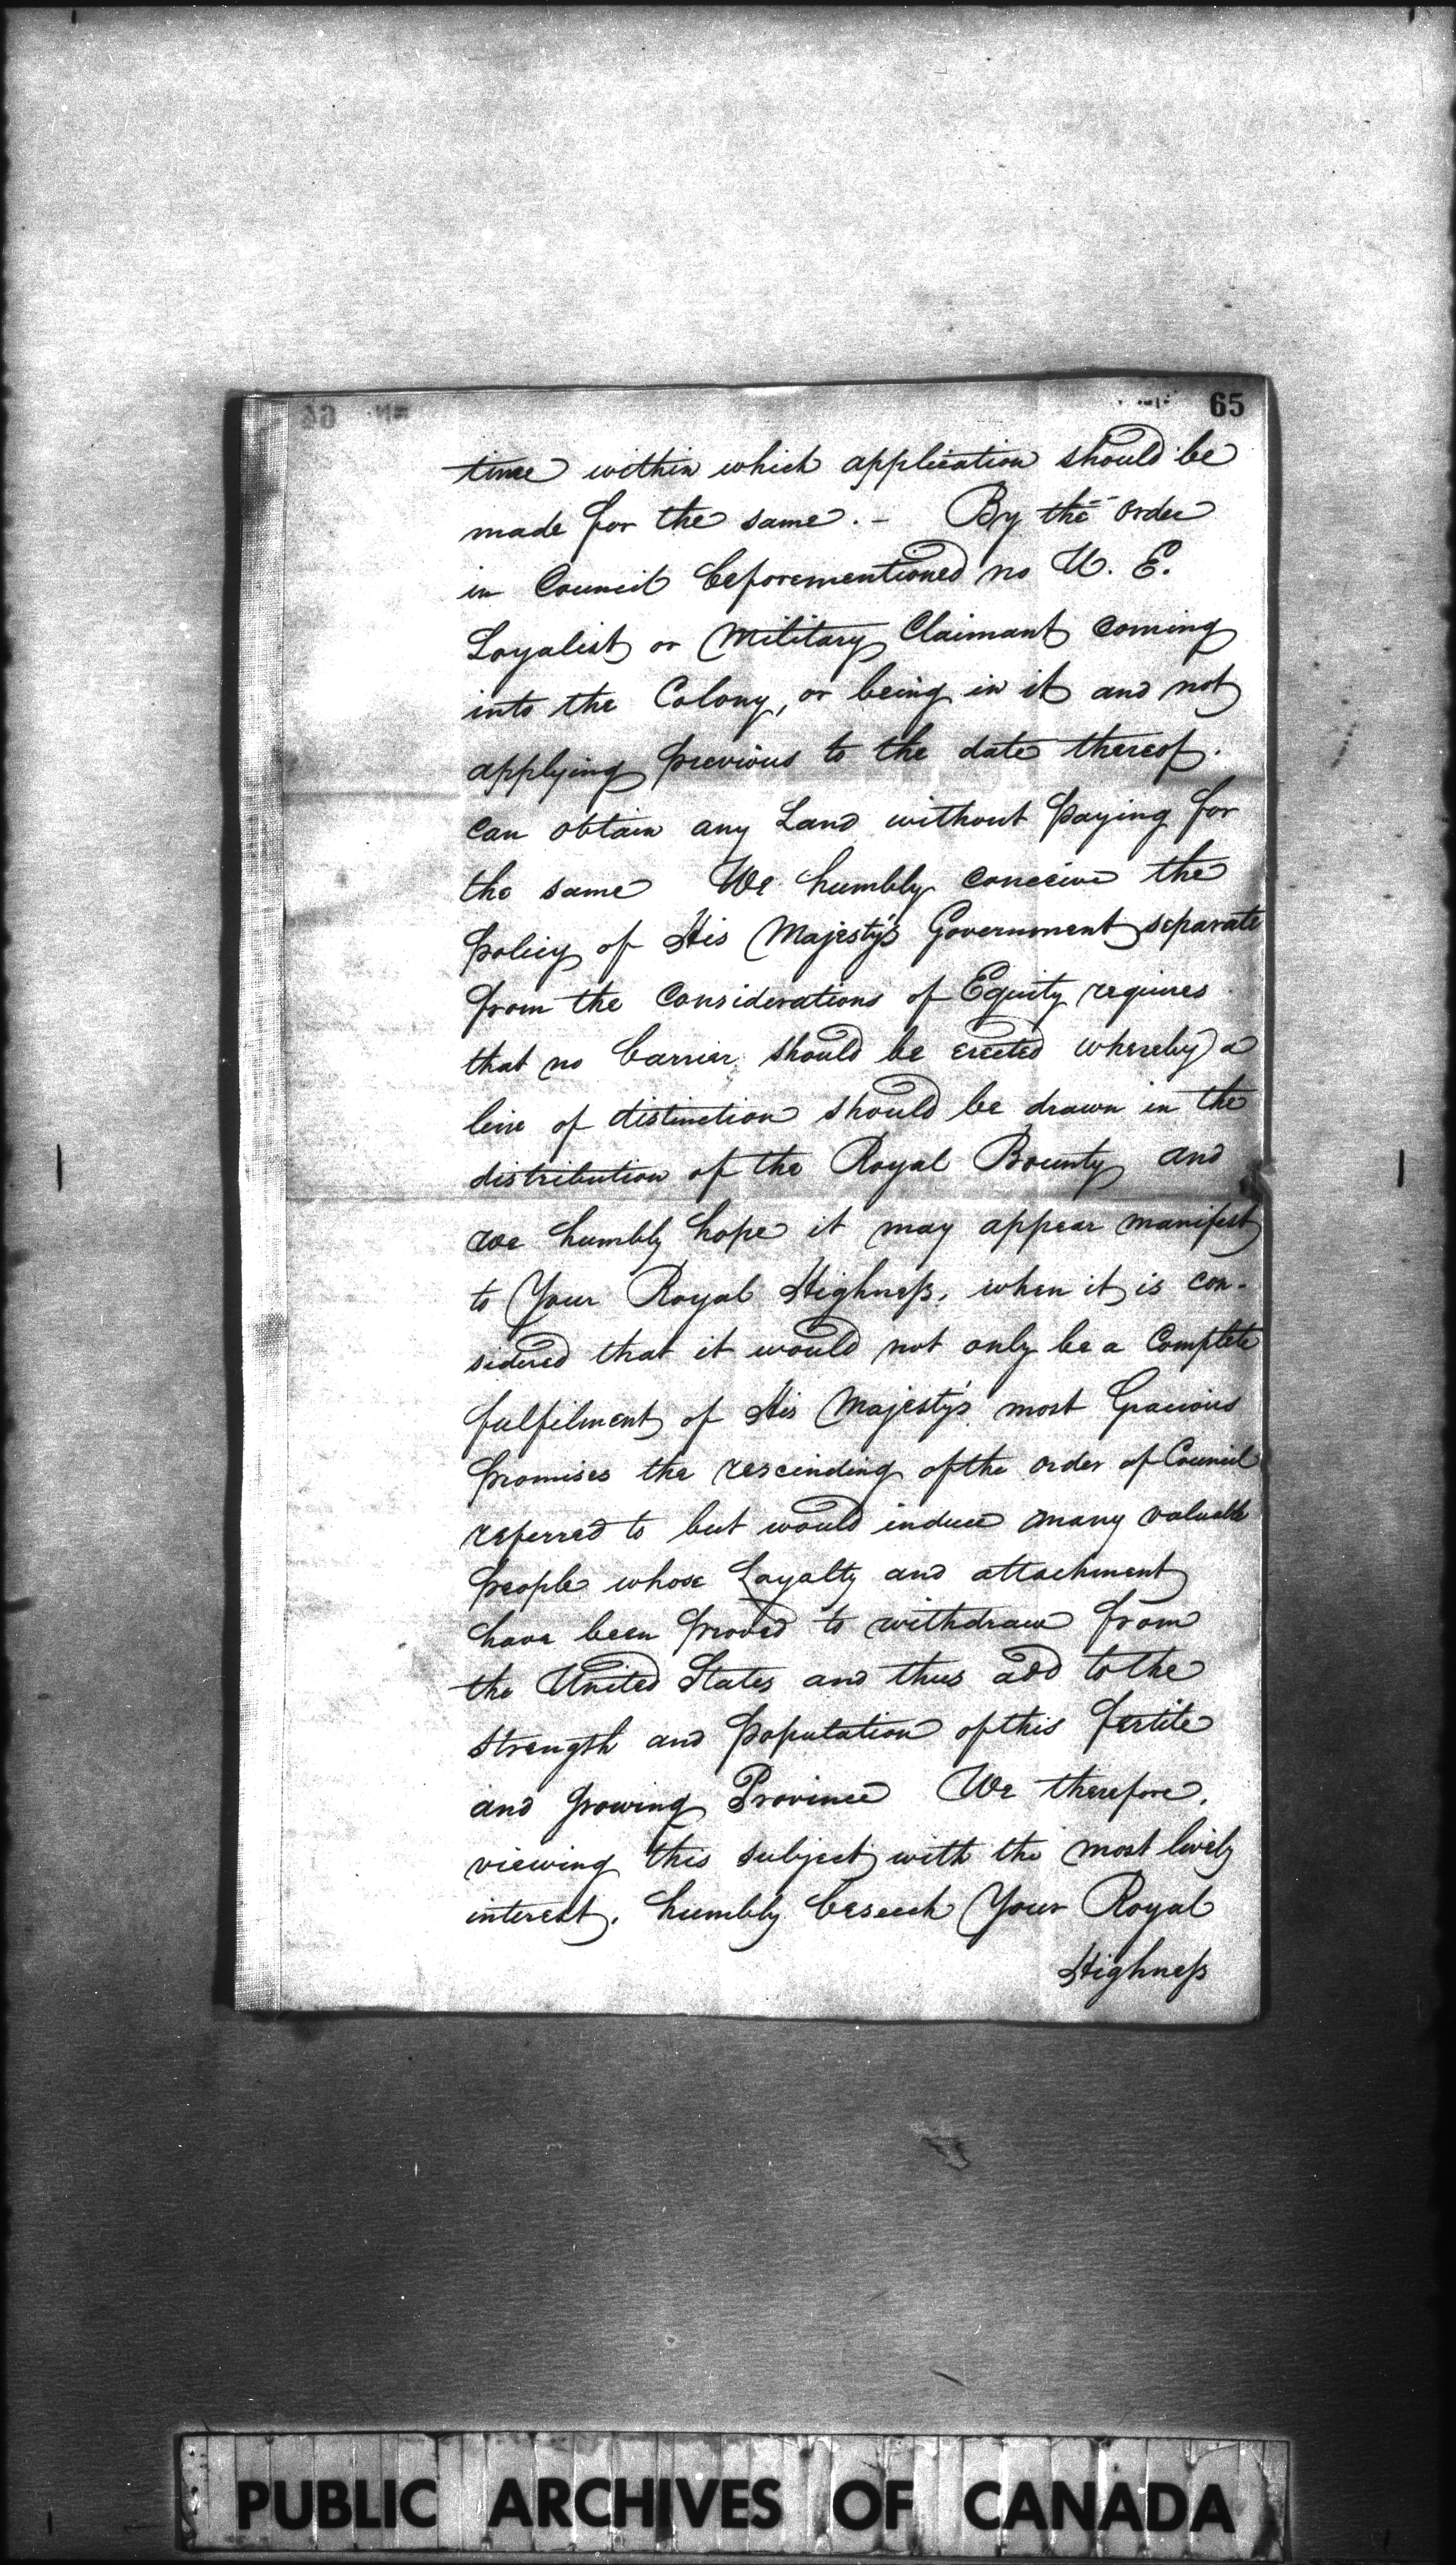 65
time within which application should be
made for the same. - By the order
in Council beforementioned no U. E.
Loyalist or Military Claimant coming
into the Colony, or being in it and not
applying previous to the date thereof.
can obtain any Land without paying for
the same We humbly conceive the
policy of His Majesty's Government separate
from the Considerations of Equity requires
that no barrier should be erected whereby a
line of distinction should be drawn in the
distribution of the Royal Bounty and
we humbly hope it may appear manifest
to Your Royal Highness, when it is con-
sidered that it would not only be a Complete
fulfilment of His Majesty's most Gracious
promises the rescinding of the order of Council
referred to but would induce many valuable
people whose Loyalty and attachment
have been proved to withdraw from
the United States and thus add to the
strength and population of this fertile
and growing Province We therefore,
viewing this subject with the most lively
interest, humbly beseech Your Royal
Highness
PUBLIC ARCHIVES OF CANADA